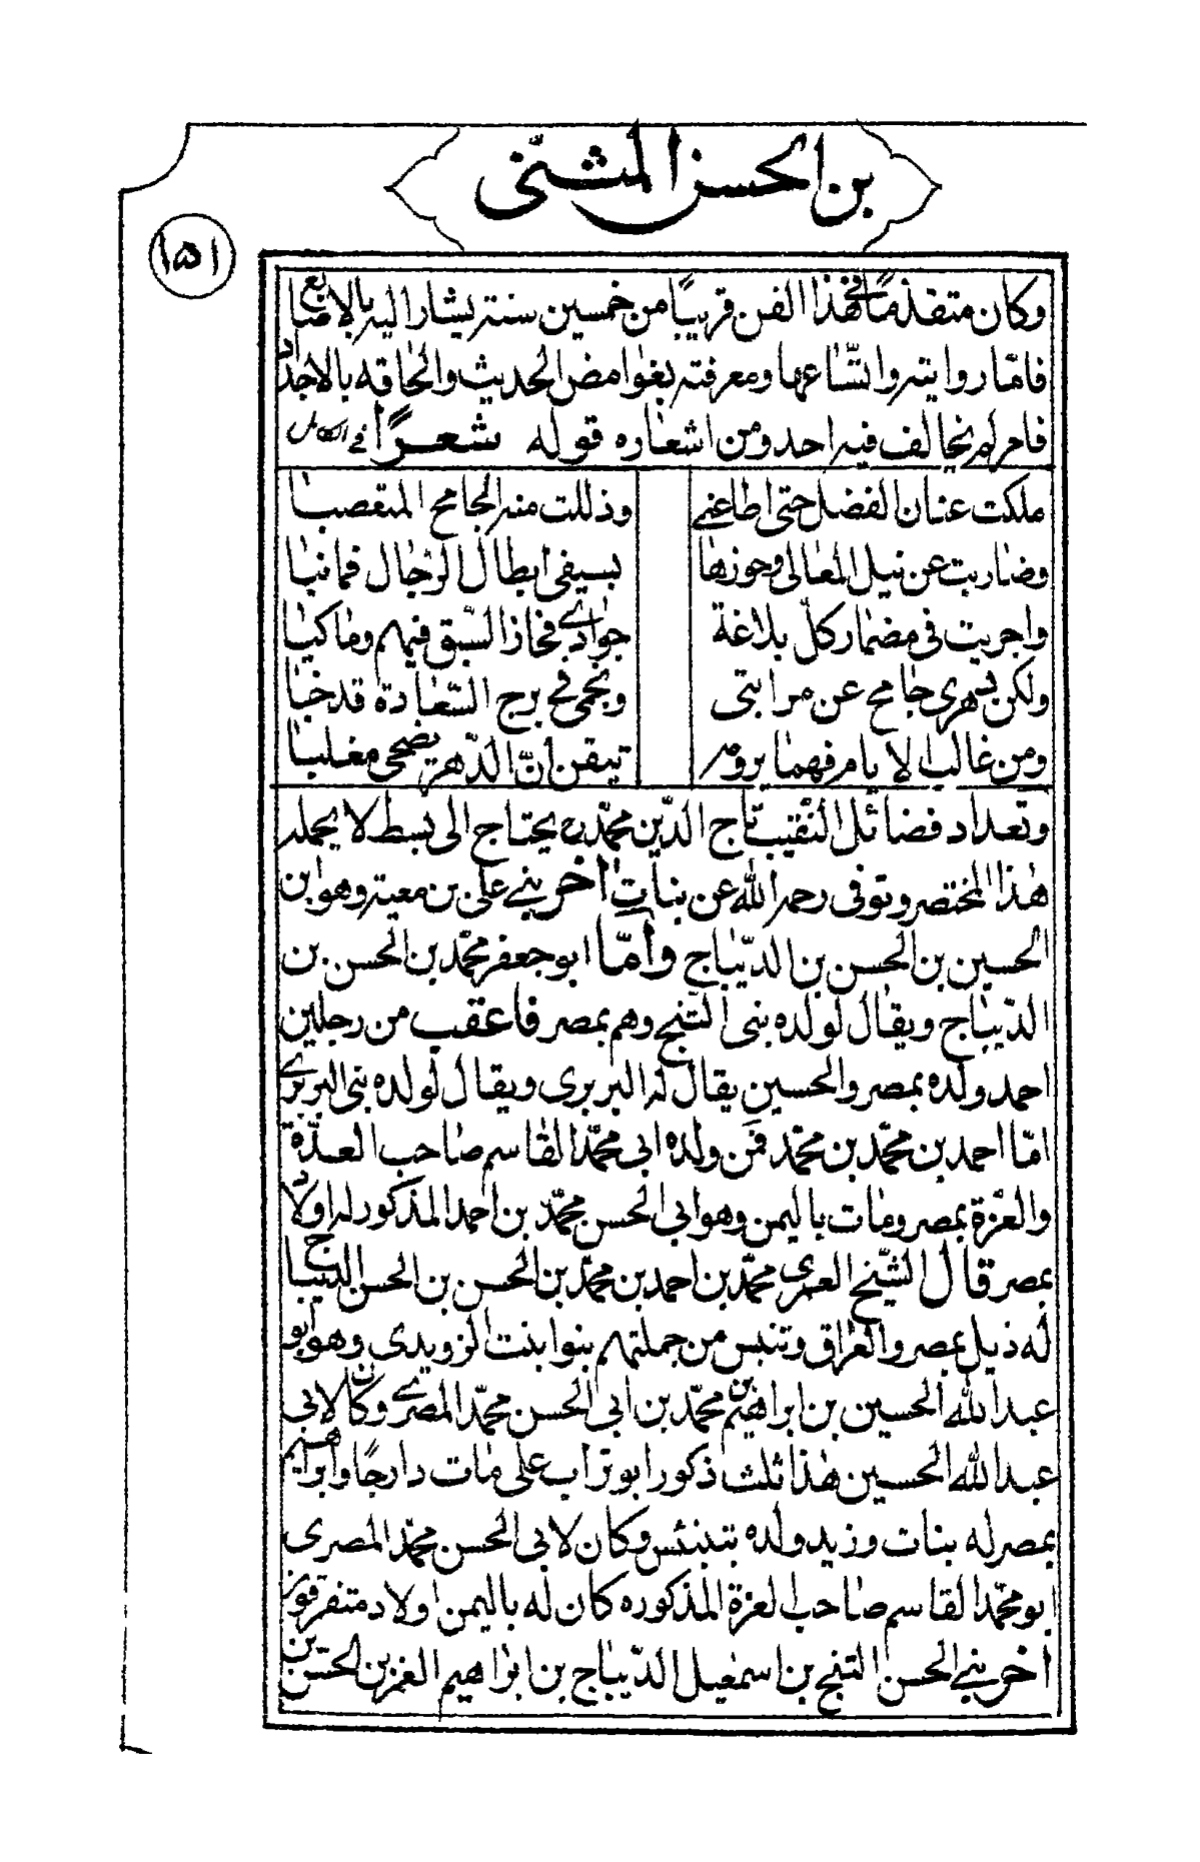 بن الحسن المثنّى
١٥١
وكان متقدّمًا في هذا الفن قريبًا من خمسين سنة يشار اليه بالاصابع
فامّا روايته واتّساعها ومعرفته بغوامض الحديث والحاقه بالاجداد
فامر لم يخالف فيه احد ومن اشعاره قوله شعرًا في الكامل
ملكت عنان الفضل حتى اطاعني
وذللت منه الجامح المتصعبا
وضاربت عن نيل المعالى وحوزها
بسيفى ابطال الرجال فما نبا
واجريت فى مضمار كلّ بلاغة
جوادي فحاز السّبق فيهم وما كبا
ولكن دهرى جامح عن مراتبى
ونجمى في برج السّعادة قد خبا
ومن غالب الايام فيما يرومه
تيقن انّ الدّهر يضحى مغلبا
وتعداد فضائل النّقيب تاج الدّين محمّد يحتاج الى بسط لا يحمله
هذا المختصر وتوفى رحمه الله عن بنات اخر بنى على بن معية وهو ابن
الحسين بن الحسن بن الدّيباج وأمّا ابو جعفر محمّد بن الحسن بن
الدّيباج ويقال لولده بنى التّج وهم بمصر فاعقب من رجلين
احمد ولده بمصر والحسين يقال له البربرى ويقال لولده بنى البربري
امّا احمد بن محمّد بن محمّد فمن ولده ابى محمّد القاسم صاحب العدّة
والعزّة بمصر ومات باليمن وهو ابى الحسن محمّد بن احمد المذكور له اولاد
بمصر قال الشّيخ العمرى محمّد بن احمد بن محمّد بن الحسن بن الحسن الديباج
له ذيل بمصر والعراق وتنيس من جملتهم بنوا بنت الزويدى وهو ابو
عبد الله الحسين بن ابراهيم بن محمّد بن ابى الحسن محمّد المصري وكان لابى
عبد الله الحسين هذا ثلث ذكور ابو تراب على مات دارجًا وابراهيم
بمصر له بنات وزيد ولده بتنيس وكان لابى الحسن محمّد المصرى
ابو محمّد القاسم صاحب العزة المذكوره كان له باليمن اولاد متفرقون
اخر بنى الحسن التج بن اسمعيل الدّيباج بن ابراهيم الغمر بن الحسن بن